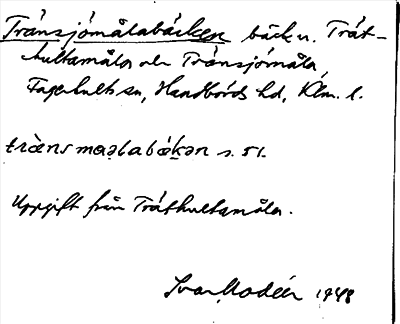 Tränsjömålabäcken bäck n. Trät-
hultamåla och Tränsjömåla
Fagerhults sn, Handbörds hd, Klm. l.
träns målabäkən s. 51.
Uppgift från Träthultamåla.
Ivar Modéer 1948